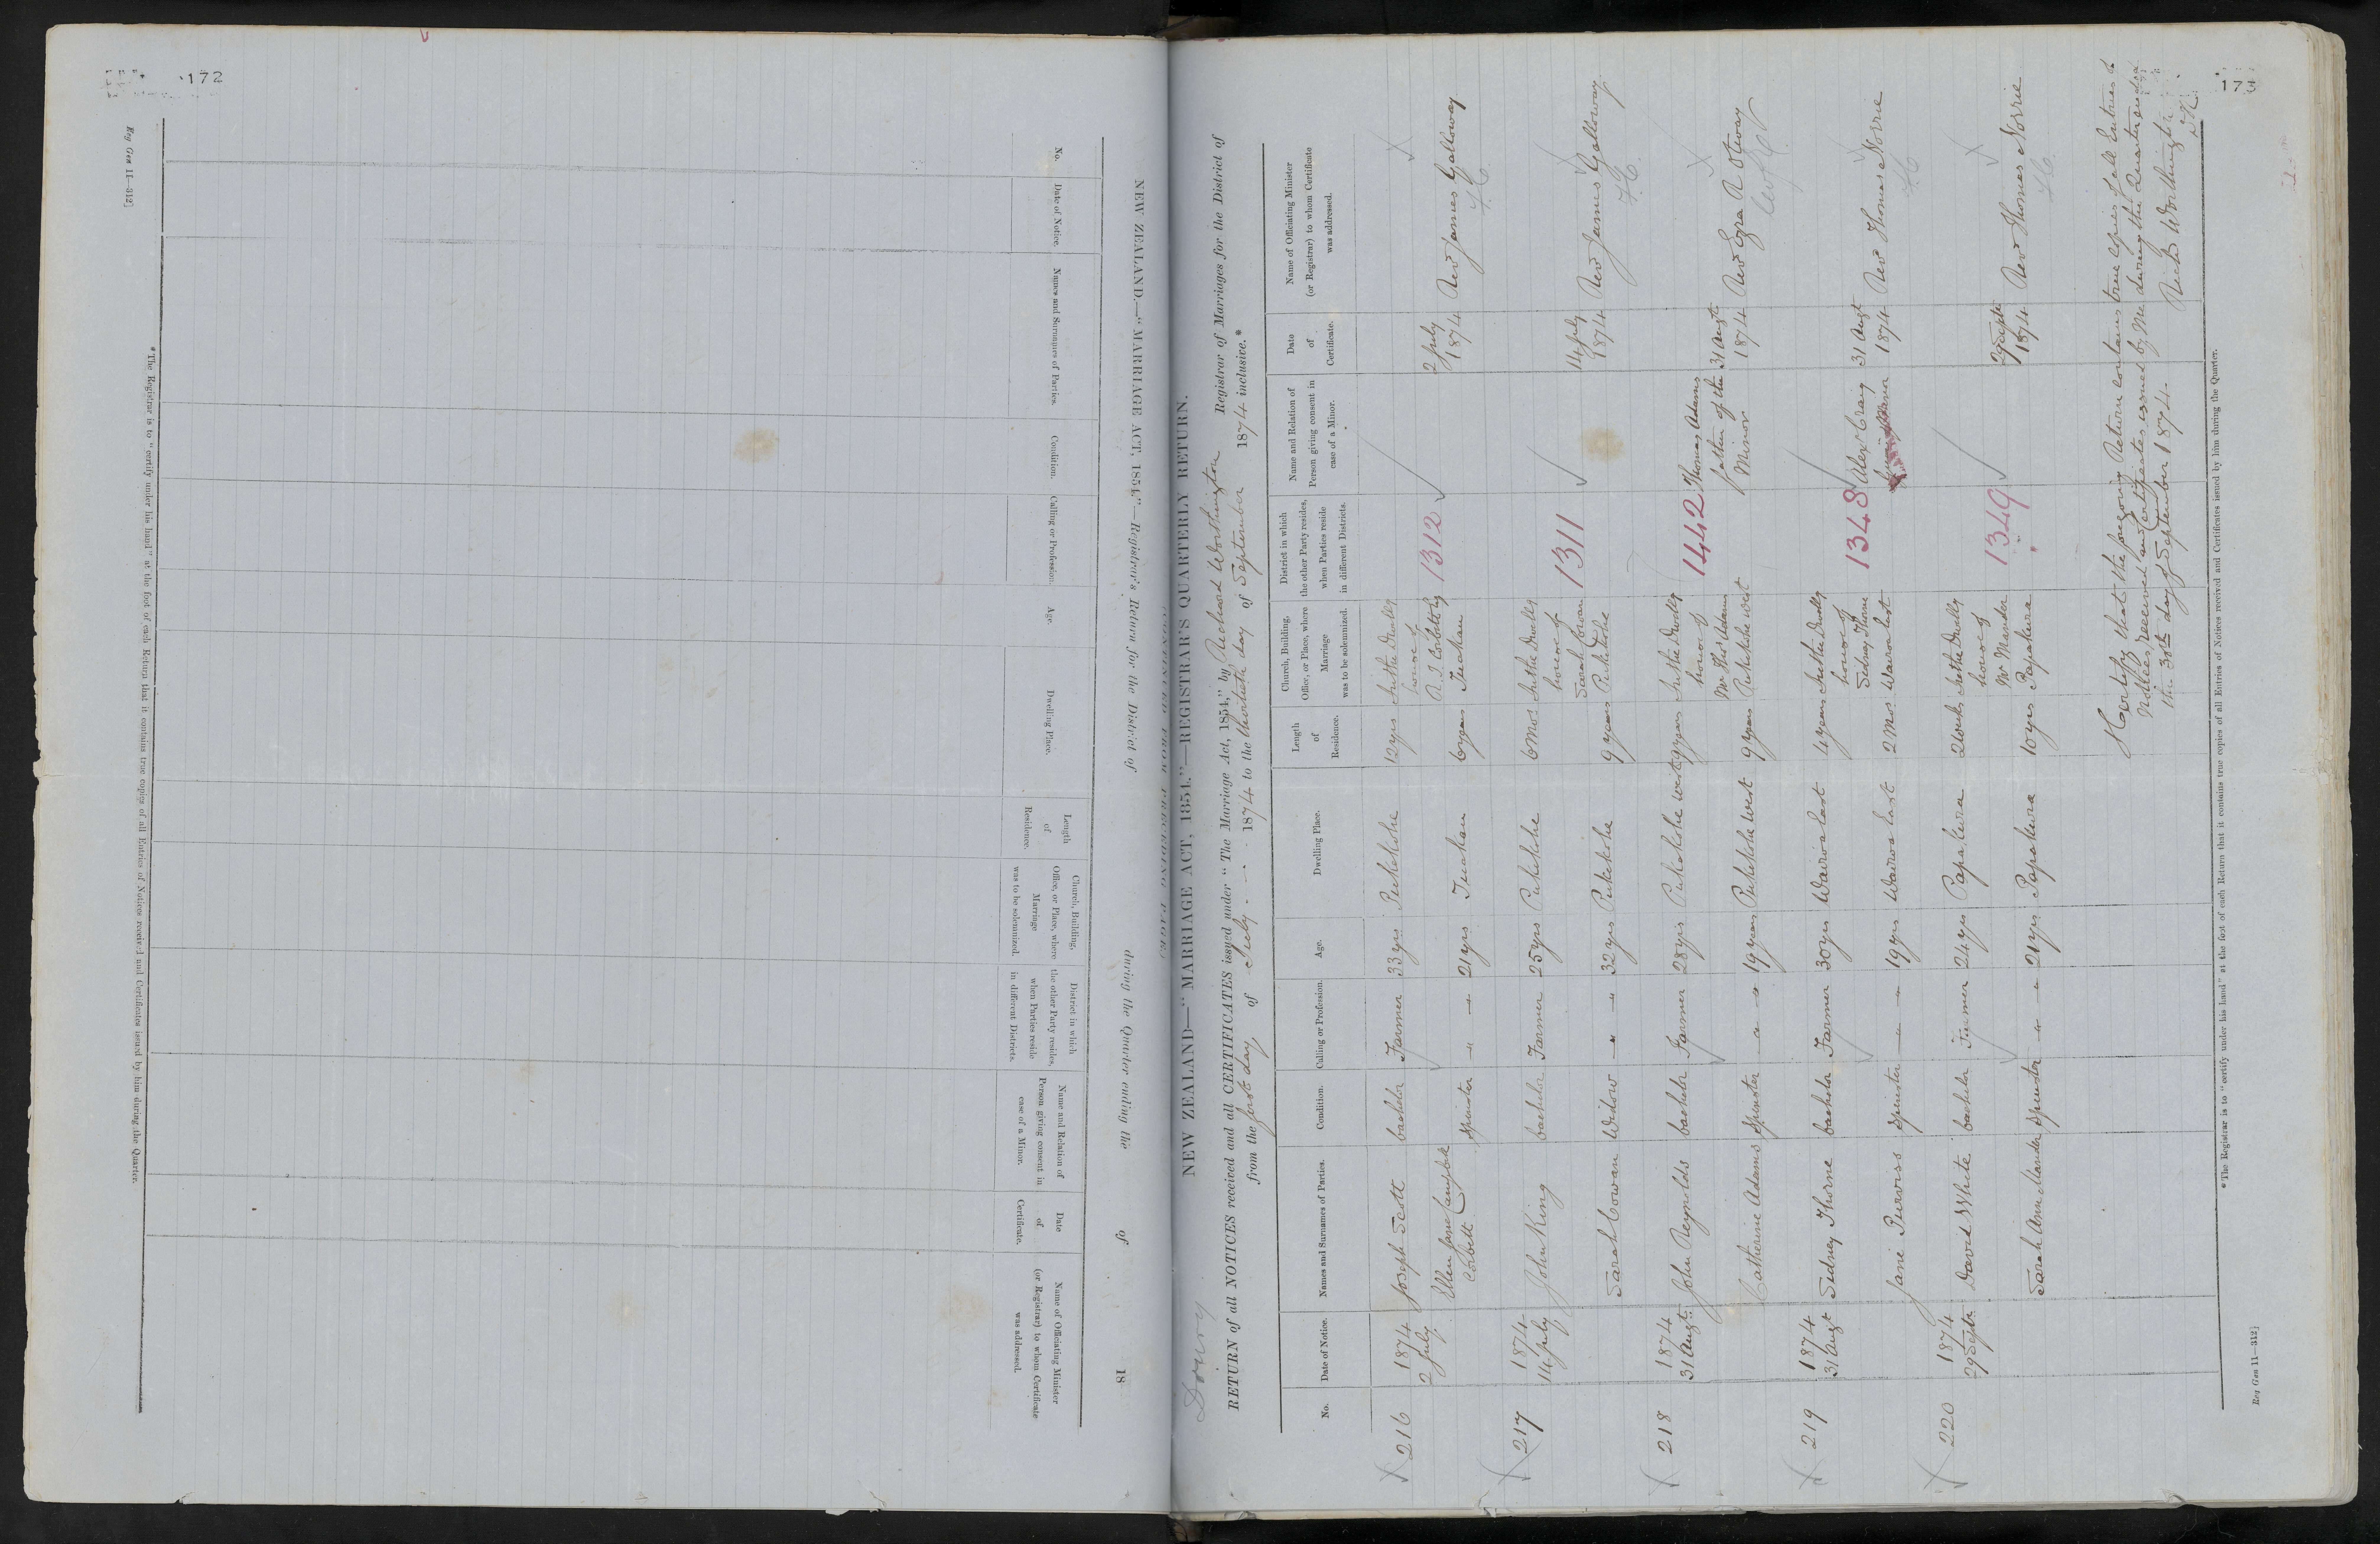 172
Reg Gen 11—312]
NEW ZEALAND.—"MARRIAGE ACT, 1854."—Registrar's Return for the District of during the Quarter ending the of 18
No.
Date of Notice.
Names and Surnames of Parties.
Condition.
Calling or Profession.
Age.
Dwelling Place.
Length
of
Residence.
Church, Building,
Office, or Place, where
Marriage
was to be solemnized.
District in which
the other Party resides,
when Parties reside
in different Districts.
Name and Relation of
Person giving consent in
case of a Minor.
Date
of
Certificate.
Name of Officiating Minister
(or Registrar) to whom Certificate
was addressed.
*The Registrar is to "certify under his hand" at the foot of each Return that it contains true copies of all Entries of Notices received and Certificates issued by him during the Quarter.
173
Drury
NEW ZEALAND—"MARRIAGE ACT, 1854."—REGISTRAR'S QUARTERLY RETURN.
RETURN of all NOTICES received and all CERTIFICATES issued under "The Marriage Act, 1854," by Richard Worthington Registrar of Marriages for the District of
from the first day of July 1874 to the thirtieth day of September 1874 inclusive.*
No.
Date of Notice.
Names and Surnames of Parties.
Condition.
Calling or Profession.
Age.
Dwelling Place.
Length
of
Residence.
Church, Building,
Office, or Place, where
Marriage
was to be solemnized.
District in which
the other Party resides,
when Parties reside
in different Districts.
Name and Relation of
Person giving consent in
case of a Minor.
Date
of
Certificate.
Name of Officiating Minister
(or Registrar) to whom Certificate
was addressed.
216 1874 Joseph Scott bachelor Farmer 33 yrs Pukekohe 12 yrs In the Dwelly
2 July house of
Ellen Jane Campbell R S Corbett Esq 1312 2 July
Corbett Spinster " 21 yrs Tuakau 6 years Tuakau 1874 Rev James Galloway
F.C.
217 1874 John King bachelor Farmer 25 yrs Pukekohe 6 mos In the Dwelly
14 July house of
Sarah Cowan 1311 14 July
Sarah Cowan Widow " 32 yrs Pukekohe 9 years Pukekohe 1874 Rev James Galloway
F.C.
218 1874 John Reynolds bachelor Farmer 28 yrs Pukekohe west 9 years In the Dwelly
31 Augt house of 1442 Thomas Adams
Mr Thos Adams father of the 31 Augt
Catherine Adams Spinster " 19 years Pukekohe West 9 years Pukekohe West Minor 1874 Rev Ezra R Otway
219 1874 Sidney Thorne bachelor Farmer 30 yrs Wairoa East 4 years In the Dwelly
31 Augt house of
Sidney Thorne 1348 Alexr Craig 31 Augt
Jane Purvess Spinster " 19 yrs Wairoa East 2 Mos Wairoa East 1874 Rev Thomas Norrie
F.C.
220 1874 David White bachelor Farmer 24 yrs Papakura 2 weeks In the Dwelly
29 Septr house of
Mr Mander 1349 29 Septr
Sarah Ann Mander Spinster " 21 yrs Papakura 10 yrs Papakura 1874 Rev Thomas Norrie
F.C.
I Certify that the foregoing Return contains true Copies of all Entries of
Notices received and Certificates issued by Me during the Quarter ended
the 30th day of September 1874.
Richd Worthington
*The Registrar is to "certify under his hand" at the foot of each Return that it contains true copies of all Entries of Notices received and Certificates issued by him during the Quarter.
Reg Gen 11—312]